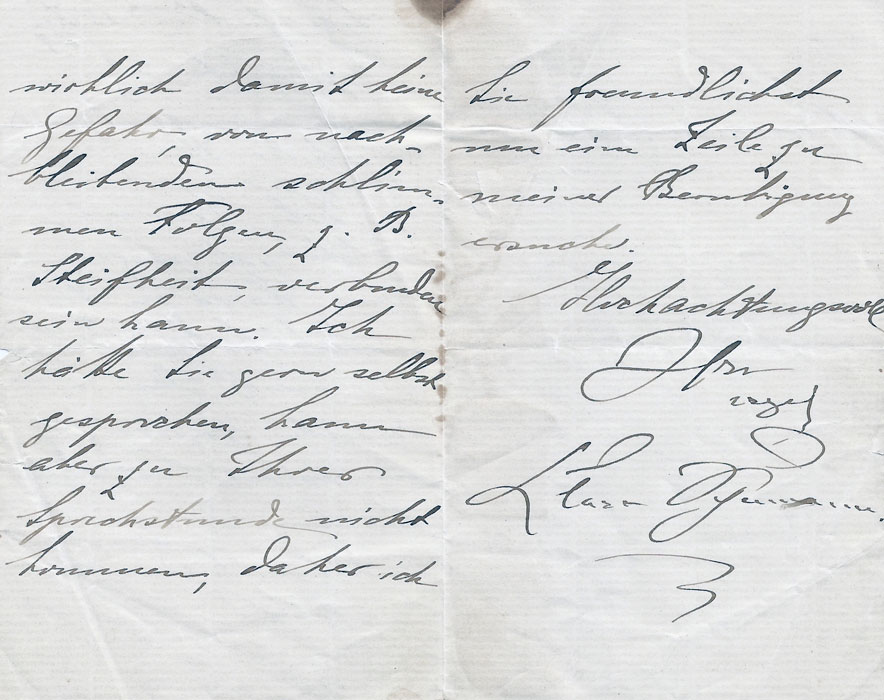 wirklich damit keine
Gefahr, von nach-
bleibenden schlim-
men Folgen, z. B.
Steifheit, verbunden
sein kann. Ich
hätte Sie gern selbst
gesprochen, kann
aber zu Ihrer
Sprechstunde nicht
kommen, daher ich
Sie freundlichst
um eine Zeile zu
meiner Beruhigung
ersuche.
Hochachtungsvoll
Ihre
Clara